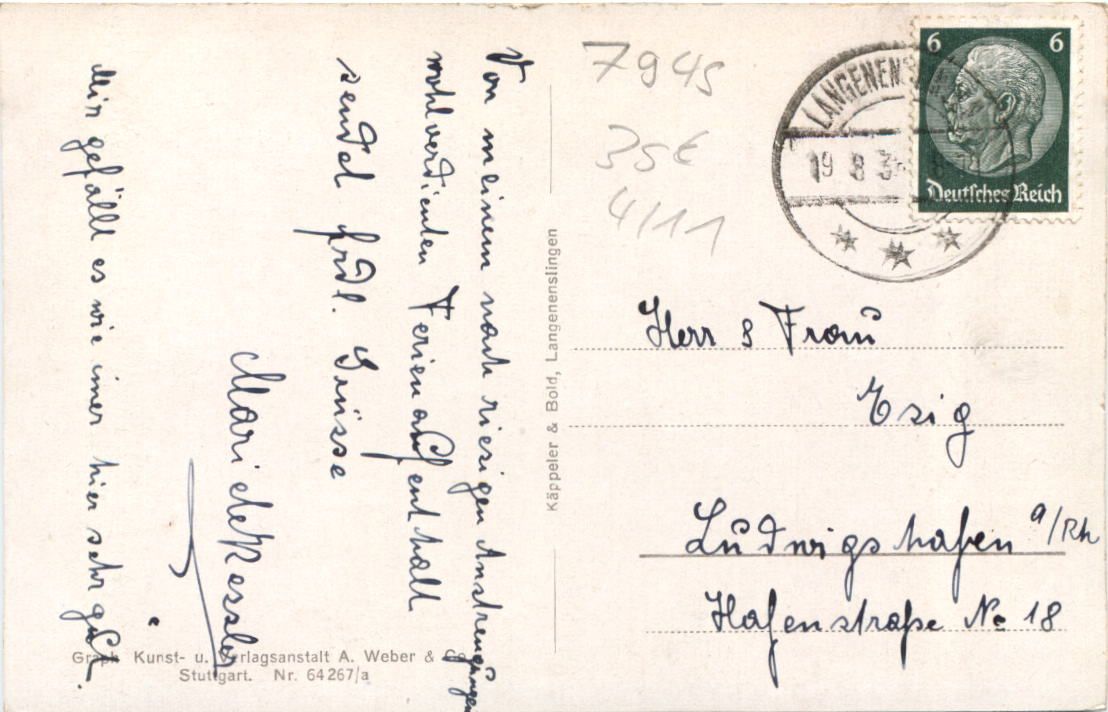 Von meinem nach riesigen Anstrengungen
wohlverdienten Ferienaufenthalt
sendet frdl. Grüsse
Mir gefällt es wie imer hier sehr gut.
7945
35€
4/11
LANGENENS
19 8 3
6 6
Deutsches Reich
Herr & Frau
Esig
Ludwigshafen a/Rh
Hafenstraße No 18
Käppeler & Bold, Langenenslingen
Graph. Kunst- u. Verlagsanstalt A. Weber & Co.
Stuttgart. Nr. 64267/a